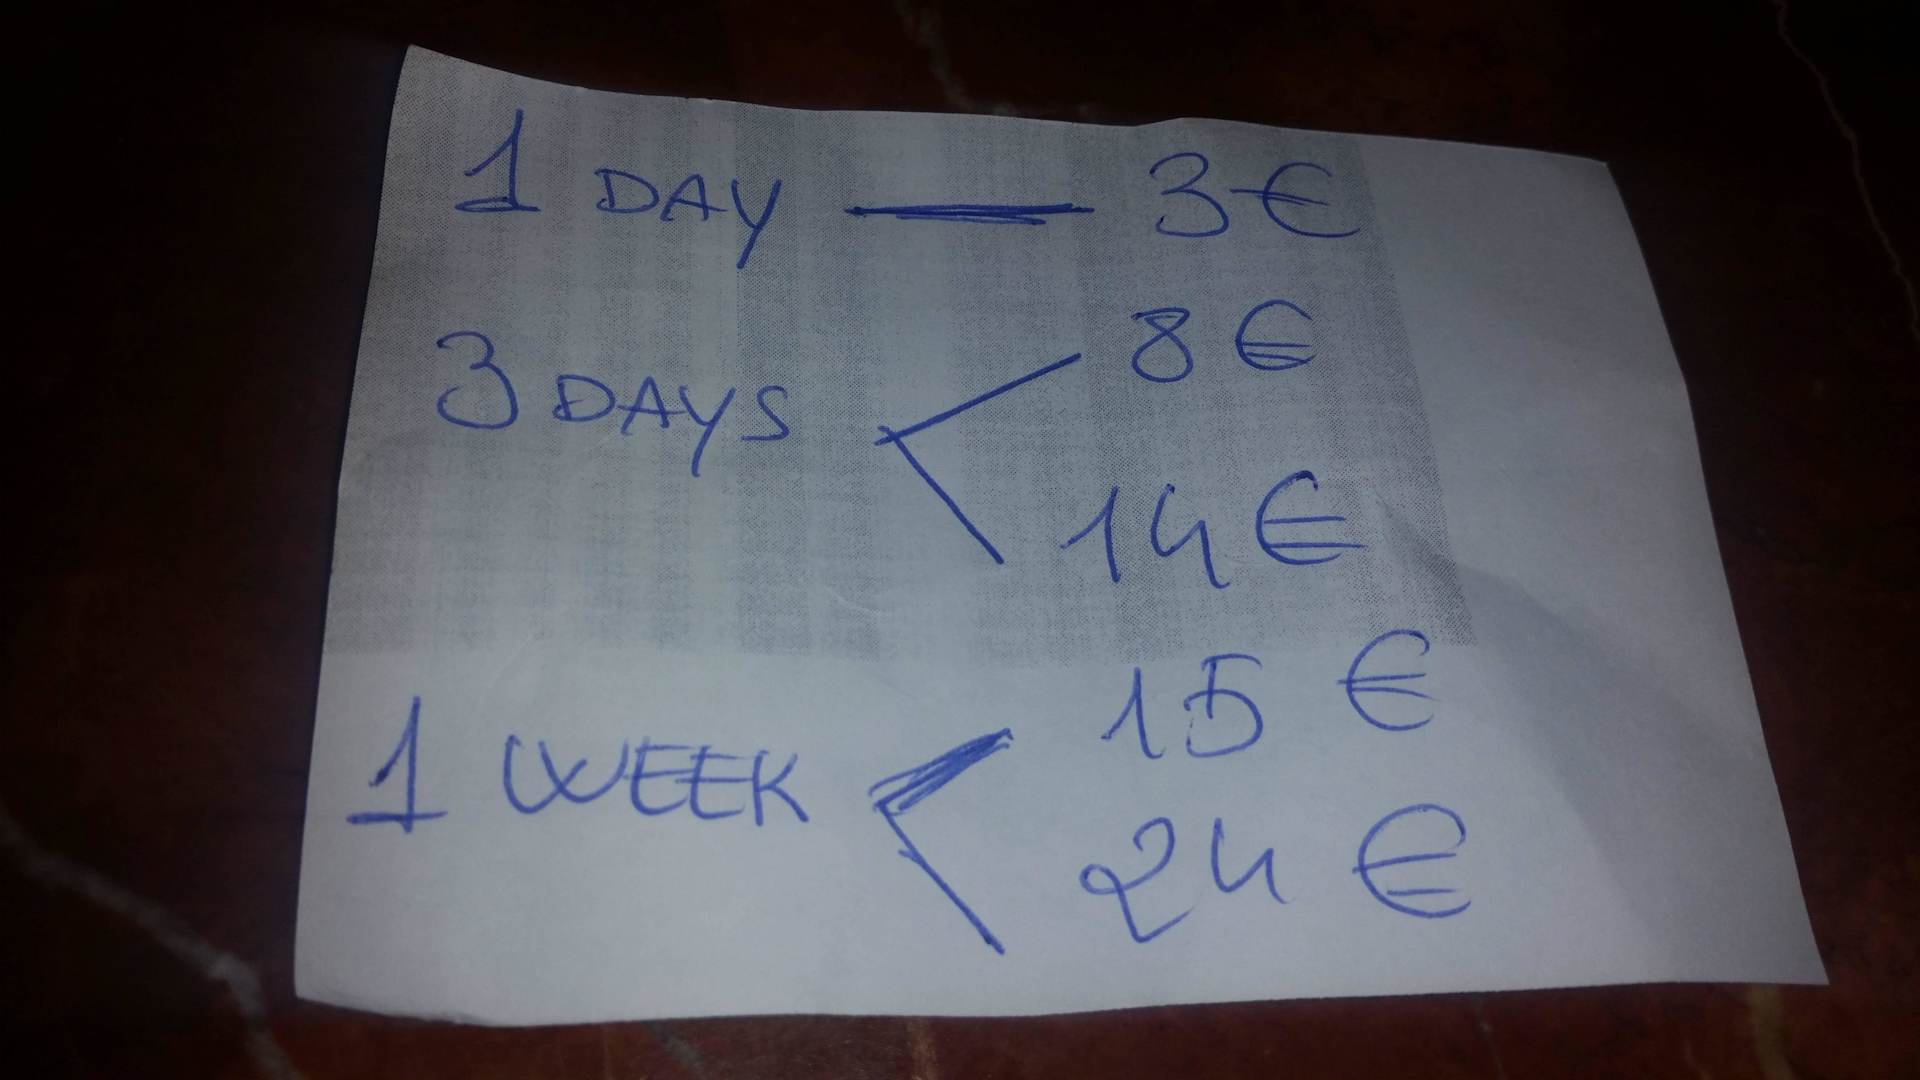 1 DAY — 3€
8 €
3 DAYS
14 €
15 €
1 WEEK
24 €